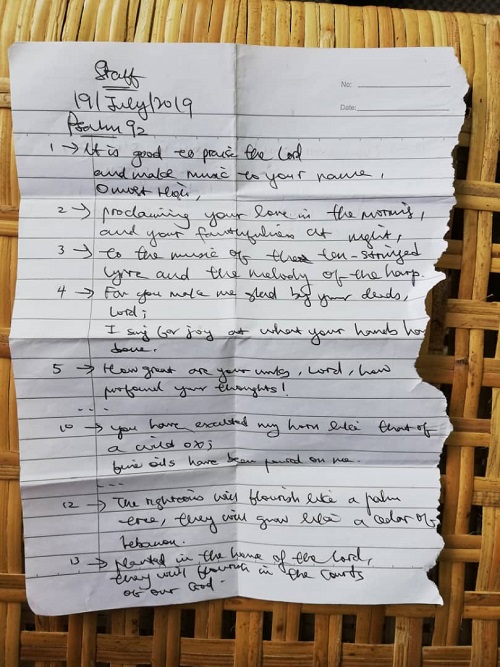 No:
Date:
Staff
19/July/2019
Psalm 92
1 → It is good to praise the Lord
and make music to your name,
O most High,
2 → proclaiming your love in the morning,
and your faithfulness at night,
3 → to the music of the ten-stringed
lyre and the melody of the harp.
4 → For you make me glad by your deeds,
Lord;
I sing for joy at what your hands ha
done.
5 → How great are your works, Lord, how
profound your thoughts!
...
10 → You have exalted my horn like that of
a wild ox;
fine oils have been poured on me.
...
12 → The righteous will flourish like a palm
tree, they will grow like a cedar of
Lebanon.
13 → planted in the house of the Lord,
they will flourish in the courts
of our God.